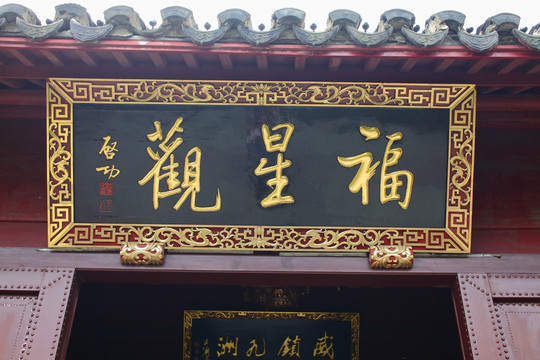 福星觀
啓功
威鎮九洲